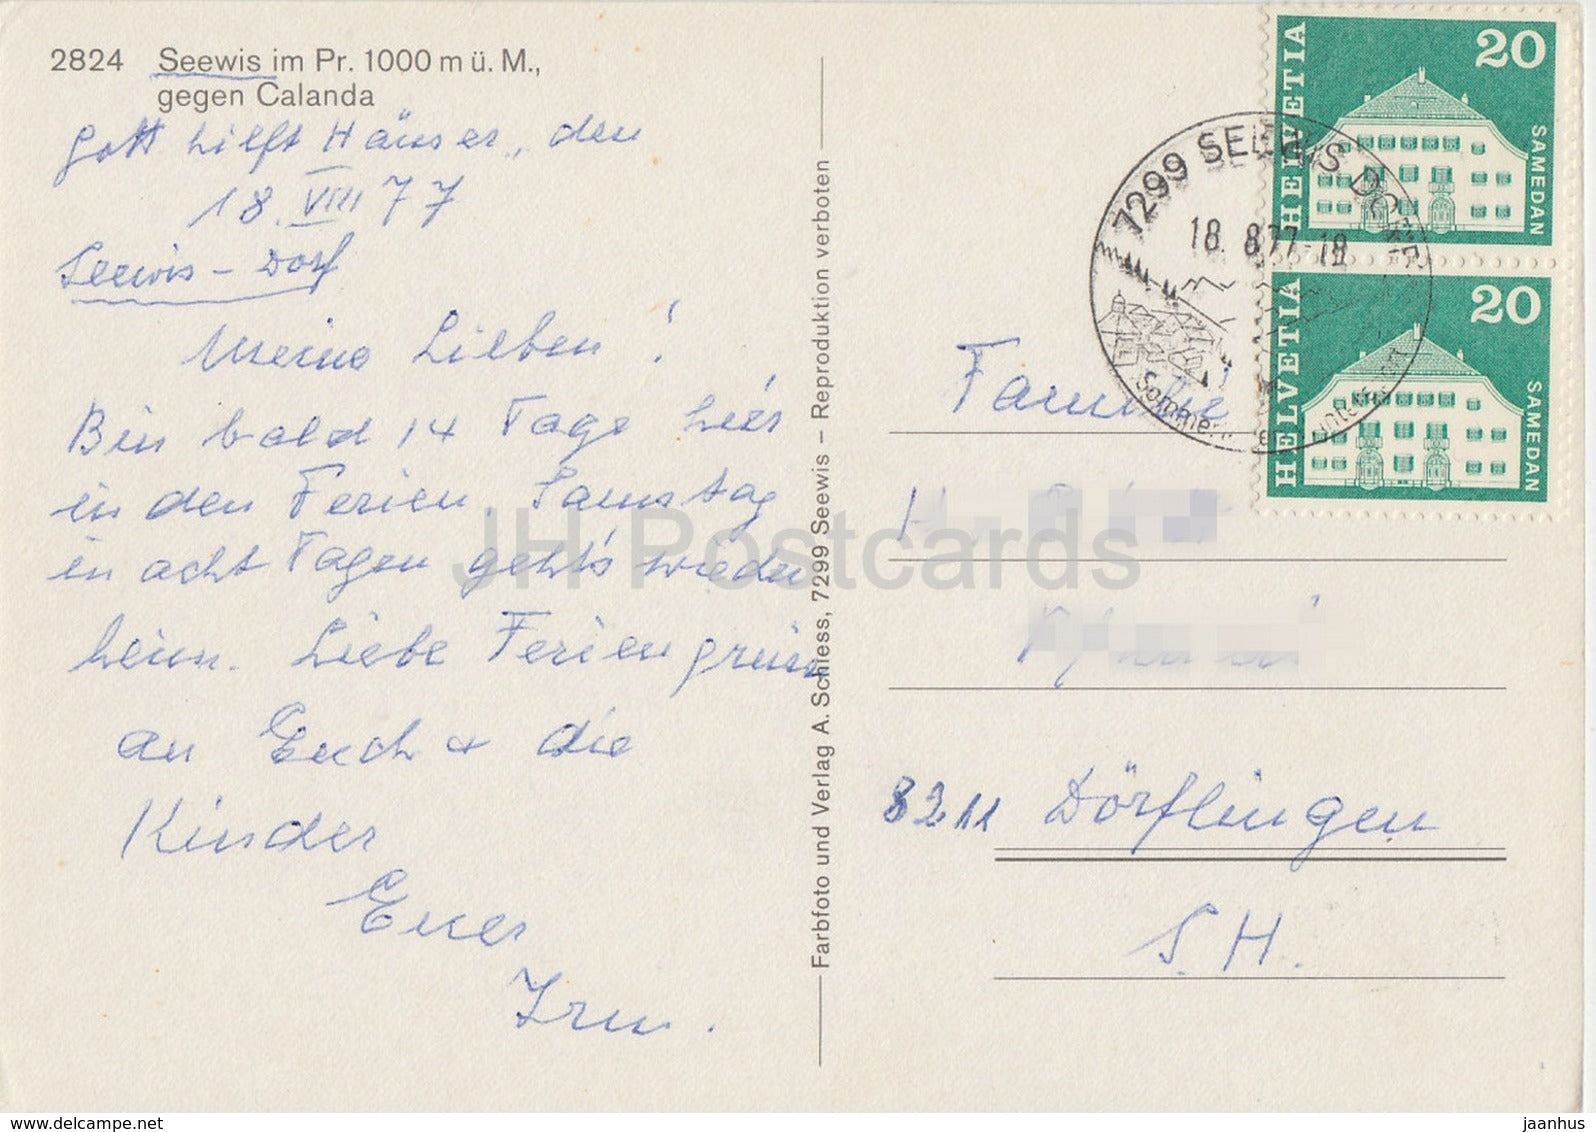 2824 Seewis im Pr. 1000 m ü. M.,
gegen Calanda
Gott hilft Häuser, den
18. VIII 77
Seewis - Dorf
Meine Lieben!
Bin bald 14 Tage hier
in den Ferien. Samstag
in acht Tagen geht's wieder
heim. Liebe Feriengrüsse
an Euch + die
Kinder
Eure
Irm.
Farbfoto und Verlag A. Schiess, 7299 Seewis – Reproduktion verboten
HELVETIA 20 SAMEDAN
HELVETIA 20 SAMEDAN
7299 SEEWIS DORF
18. 8.77-18
Sommer
Familie
H.
8211 Dörflingen
S.H.
JH Postcards
www.delcampe.net
jaanhus